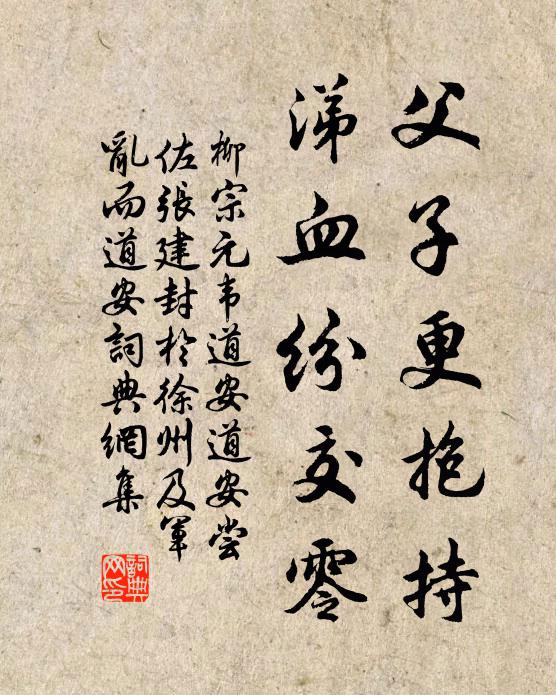 父子更抱持
涕血纷交零
柳宗元韦道安道安尝
佐張建封於徐州及军
亂而道安詞典網集
詞典
网印